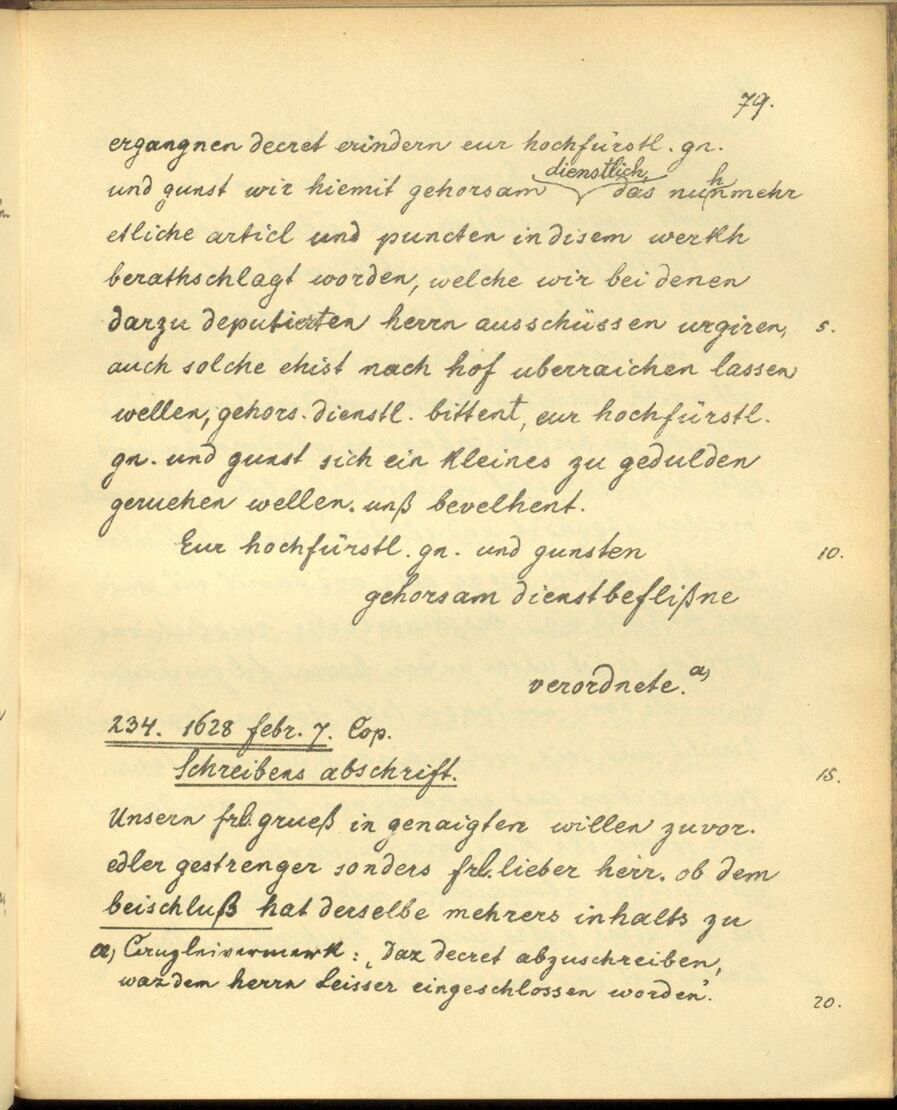 79.
ergangnen decret erindern eur hochfürstl. gn.
und gunst wir hiemit gehorsam dienstlich, das nuhnmehr
etliche articl und puncten in disem werkh
berathschlagt worden, welche wir bei denen
darzu deputierten herrn ausschüssen urgiren, 5.
auch solche ehist nach hof uberraichen lassen
wellen, gehors. dienstl. bittent, eur hochfürstl.
gn. und gunst sich ein kleines zu gedulden
geruehen wellen. unß bevelhent.
Eur hochfürstl. gn. und gunsten 10.
gehorsam dienstbeflißne
verordnete. a)
234. 1628 febr. 7. Cop.
Schreibens abschrift. 15.
Unsern frl. grueß in genaigten willen zuvor.
edler gestrenger sonders frl. lieber herr. ob dem
beischluß hat derselbe mehrers inhalts zu
a) Canzleivermerk: „Daz decret abzuschreiben,
waz dem herrn Leisser eingeschlossen worden". 20.